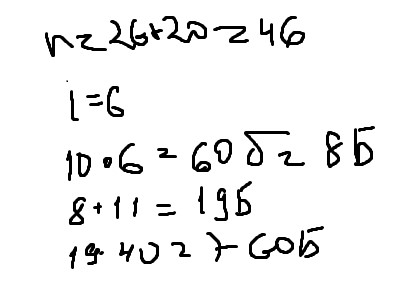 n=26+20=46
i=6
10•6=60б=8Б
8+11=19Б
19•40=760Б